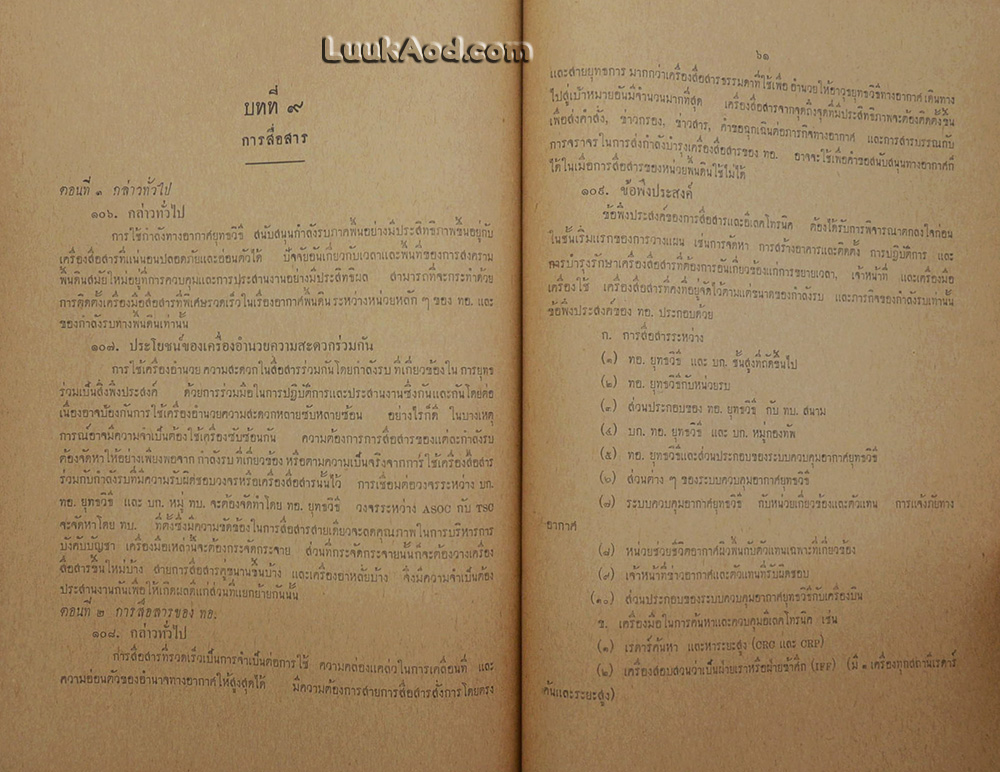 LuukAod.com
บทที่ ๙
การสื่อสาร
ตอนที่ ๑ กล่าวทั่วไป
๑๐๖. กล่าวทั่วไป
การใช้กำลังทางอากาศยุทธวิธี สนับสนุนกำลังรบภาคพื้นอย่างมีประสิทธิภาพขึ้นอยู่กับ
เครื่องสื่อสารที่แน่นอนปลอดภัยและอ่อนตัวได้ ปัจจัยอันเกี่ยวกับเวลาและพื้นที่ของการสงคราม
พื้นดินสมัยใหม่อยู่ที่การควบคุมและการประสานงานอย่างมีประสิทธิผล สามารถที่จะกระทำด้วย
การติดตั้งเครื่องมือสื่อสารที่พิเศษรวดเร็วในเรื่องอากาศพื้นดิน ระหว่างหน่วยหลัก ๆ ของ ทอ. และ
ของกำลังรบทางพื้นดินเท่านั้น
๑๐๗. ประโยชน์ของเครื่องอำนวยความสะดวกร่วมกัน
การใช้เครื่องอำนวย ความสะดวกในสื่อสารร่วมกันโดยกำลังรบ ที่เกี่ยวข้องใน การยุทธ
ร่วมเป็นสิ่งพึงประสงค์ ด้วยการร่วมมือในการปฏิบัติการและประสานงานซึ่งกันและกันโดยต่อ
เนื่องอาจป้องกันการใช้เครื่องอำนวยความสะดวกหลายซับหลายซ้อน อย่างไรก็ดี ในบางเหตุ
การณ์อาจมีความจำเป็นต้องใช้เครื่องซับซ้อนกัน ความต้องการการสื่อสารของแต่ละกำลังรบ
ต้องจัดหาให้อย่างเพียงพอจาก กำลังรบที่เกี่ยวข้อง หรือตามความเป็นจริงจากการใช้เครื่องสื่อสาร
ร่วมกับกำลังรบที่มีความรับผิดชอบวงจรหรือเครื่องสื่อสารนั้นไว้ การเชื่อมต่อวงจรระหว่าง บก.
ทอ. ยุทธวิธี และ บก. หมู่ ทบ. จะต้องจัดทำโดย ทอ. ยุทธวิธี วงจรระหว่าง ASOC กับ TSC
จะจัดหาโดย ทบ. ที่ตั้งซึ่งมีความขัดข้องในการสื่อสารสายเดียวจะลดคุณภาพในการบริหารการ
บังคับบัญชา เครื่องมือเหล่านี้จะต้องกระจัดกระจาย ส่วนที่กระจัดกระจายนั้นก็จะต้องวางเครื่อง
สื่อสารขึ้นใหม่บ้าง สายการสื่อสารคู่ขนานขึ้นบ้าง และเครื่องอาหลัยบ้าง จึงมีความจำเป็นต้อง
ประสานงานกันเพื่อให้เกิดผลดีแก่ส่วนที่แยกย้ายกันนั้น
ตอนที่ ๒ การสื่อสารของ ทอ.
๑๐๘. กล่าวทั่วไป
การสื่อสารที่รวดเร็วเป็นการจำเป็นต่อการใช้ ความคล่องแคล่วในการเคลื่อนที่ และ
ความอ่อนตัวของอำนาจทางอากาศให้สูงสุดได้ มีความต้องการสายการสื่อสารสั่งการโดยตรง
๖๑
และสายยุทธการ มากกว่าเครื่องสื่อสารธรรมดาที่ใช้เพื่อ อำนวยให้อาวุธยุทธวิธีทางอากาศ เดินทาง
ไปสู่เป้าหมายอันมีจำนวนมากที่สุด เครื่องสื่อสารจากจุดถึงจุดที่มีประสิทธิภาพจะต้องติดตั้งขึ้น
เพื่อส่งคำสั่ง, ข่าวกรอง, ข่าวสาร, คำขอฉุกเฉินต่อภารกิจทางอากาศ และการสารบรรณกับ
การจราจรในการส่งกำลังบำรุงเครื่องสื่อสารของ ทอ. อาจจะใช้เพื่อคำขอสนับสนุนทางอากาศก็
ได้ในเมื่อการสื่อสารของหน่วยพื้นดินใช้ไม่ได้
๑๐๙. ข้อพึงประสงค์
ข้อพึงประสงค์ของการสื่อสารและอีเลคโทรนิค ต้องได้รับการพิจารณาตกลงใจก่อน
ในชั้นเริ่มแรกของการวางแผน เช่นการจัดหา การสร้างอาคารและติดตั้ง การปฏิบัติการ และ
การบำรุงรักษาเครื่องสื่อสารที่ต้องการอันเกี่ยวข้องแก่การขยายเวลา, เจ้าหน้าที่ และเครื่องมือ
เครื่องใช้ เครื่องสื่อสารที่คงที่อยู่จัดไว้ตามแต่ขนาดของกำลังรบ และภารกิจของกำลังรบเท่านั้น
ข้อพึงประสงค์ของ ทอ. ประกอบด้วย
ก. การสื่อสารระหว่าง
(๑) ทอ. ยุทธวิธี และ บก. ชั้นสูงที่ถัดขึ้นไป
(๒) ทอ. ยุทธวิธีกับหน่วยรบ
(๓) ส่วนประกอบของ ทอ. ยุทธวิธี กับ ทบ. สนาม
(๔) บก. ทอ. ยุทธวิธี และ บก. หมู่กองทัพ
(๕) ทอ. ยุทธวิธีและส่วนประกอบของระบบควบคุมอากาศยุทธวิธี
(๖) ส่วนต่าง ๆ ของระบบควบคุมอากาศยุทธวิธี
(๗) ระบบควบคุมอากาศยุทธวิธี กับหน่วยเกี่ยวข้องและตัวแทน การแจ้งภัยทาง
อากาศ
(๘) หน่วยช่วยชีวิตอากาศผิวพื้นกับตัวแทนเฉพาะที่เกี่ยวข้อง
(๙) เจ้าหน้าที่ข่าวอากาศและตัวแทนที่รับผิดชอบ
(๑๐) ส่วนประกอบของระบบควบคุมอากาศยุทธวิธีกับเครื่องบิน
ข. เครื่องมือในการค้นหาและควบคุมอีเลคโทรนิค เช่น
(๑) เรดาร์ค้นหา และหาระยะสูง (CRC และ CRP)
(๒) เครื่องสอบสวนว่าเป็นฝ่ายเราหรือฝ่ายข้าศึก (IFF) (มี ๑ เครื่องทุกสถานีเรดาร์
ค้นและระยะสูง)